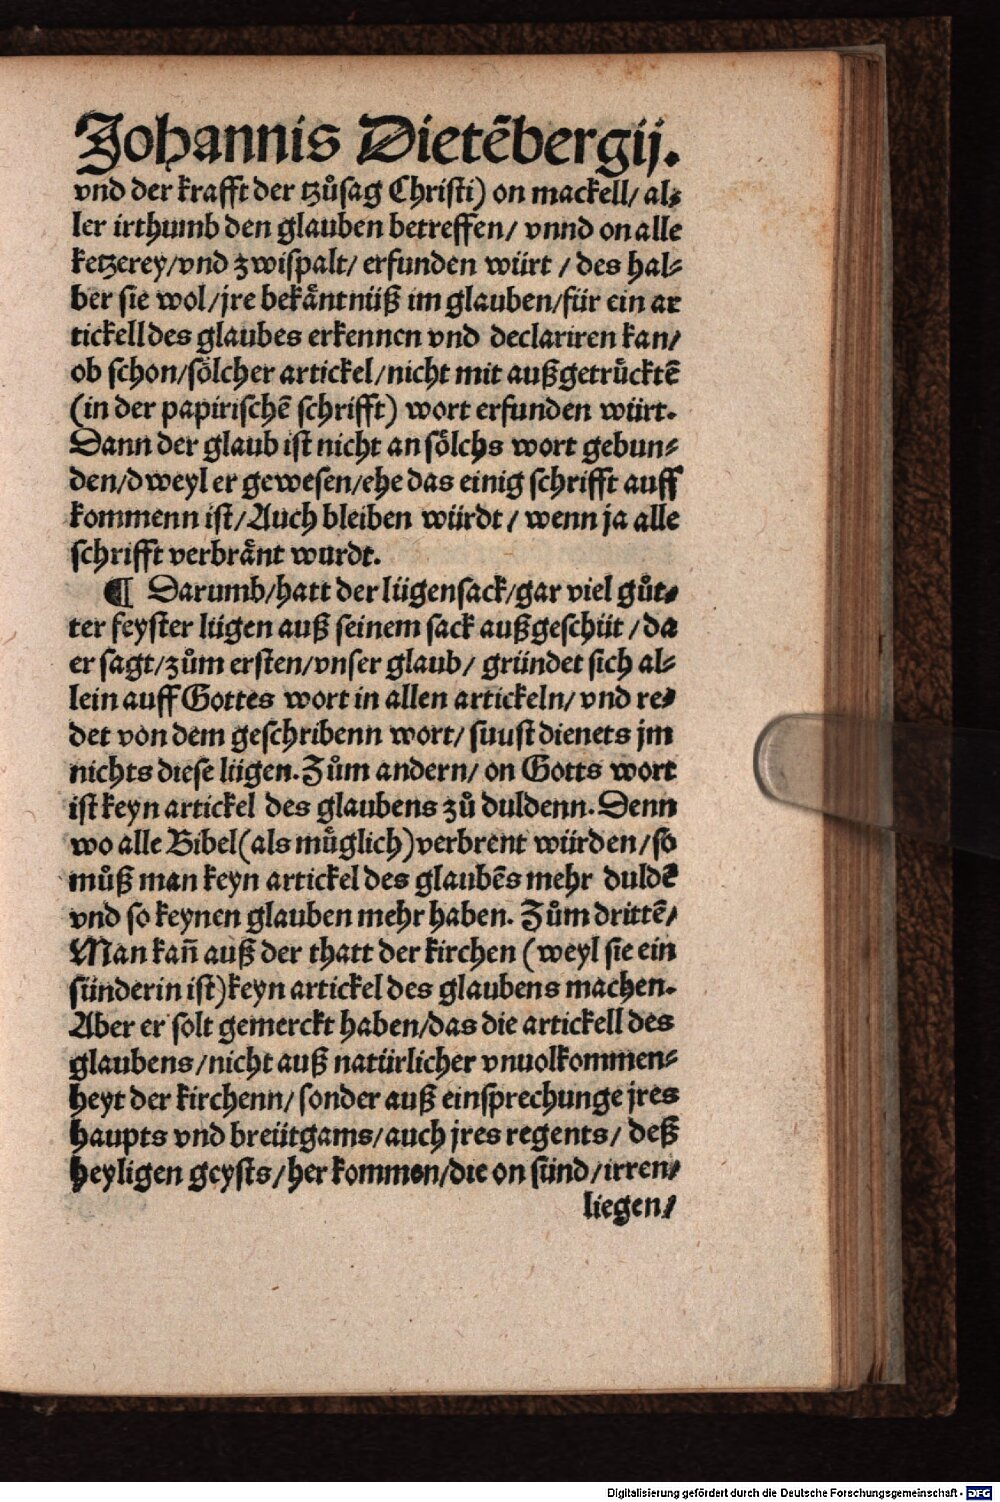 Johannis Dietẽbergij.
vnd der krafft der tzůsag Christi) on mackell/ al⸗
ler irthumb den glauben betreffen/ vnnd on alle
ketzerey/vnd zwispalt/ erfunden würt / des hal⸗
ber sie wol/jre bekäntnüß im glauben/für ein ar
tickell des glaubes erkennen vnd declariren kan/
ob schon/sölcher artickel/nicht mit außgetrücktẽ
(in der papirischẽ schrifft) wort erfunden würt.
Dann der glaub ist nicht an sölchs wort gebun⸗
den/dweyl er gewesen/ehe das einig schrifft auff
kommenn ist/Auch bleiben würdt / wenn ja alle
schrifft verbränt wurdt.
¶ Darumb/hatt der lügensack/gar viel gůt⸗
ter feyster lügen auß seinem sack außgeschüt / da
er sagt/zům ersten/vnser glaub/ gründet sich al⸗
lein auff Gottes wort in allen artickeln/ vnd re⸗
det von dem geschribenn wort/ suust dienets jm
nichts diese lügen. Zům andern/ on Gotts wort
ist keyn artickel des glaubens zů duldenn. Denn
wo alle Bibel(als müglich)verbrent würden/so
můß man keyn artickel des glaubẽs mehr duldẽ
vnd so keynen glauben mehr haben. Zům drittẽ/
Man kañ auß der thatt der kirchen (weyl sie ein
sünderin ist)keyn artickel des glaubens machen.
Aber er solt gemerckt haben/das die artickell des
glaubens/nicht auß natürlicher vnuolkommen⸗
heyt der kirchenn/ sonder auß einsprechunge jres
haupts vnd breütgams/auch jres regents/ deß
heyligen geysts/her kommen/die on sünd/irren/
liegen/
Digitalisierung gefördert durch die Deutsche Forschungsgemeinschaft - DFG